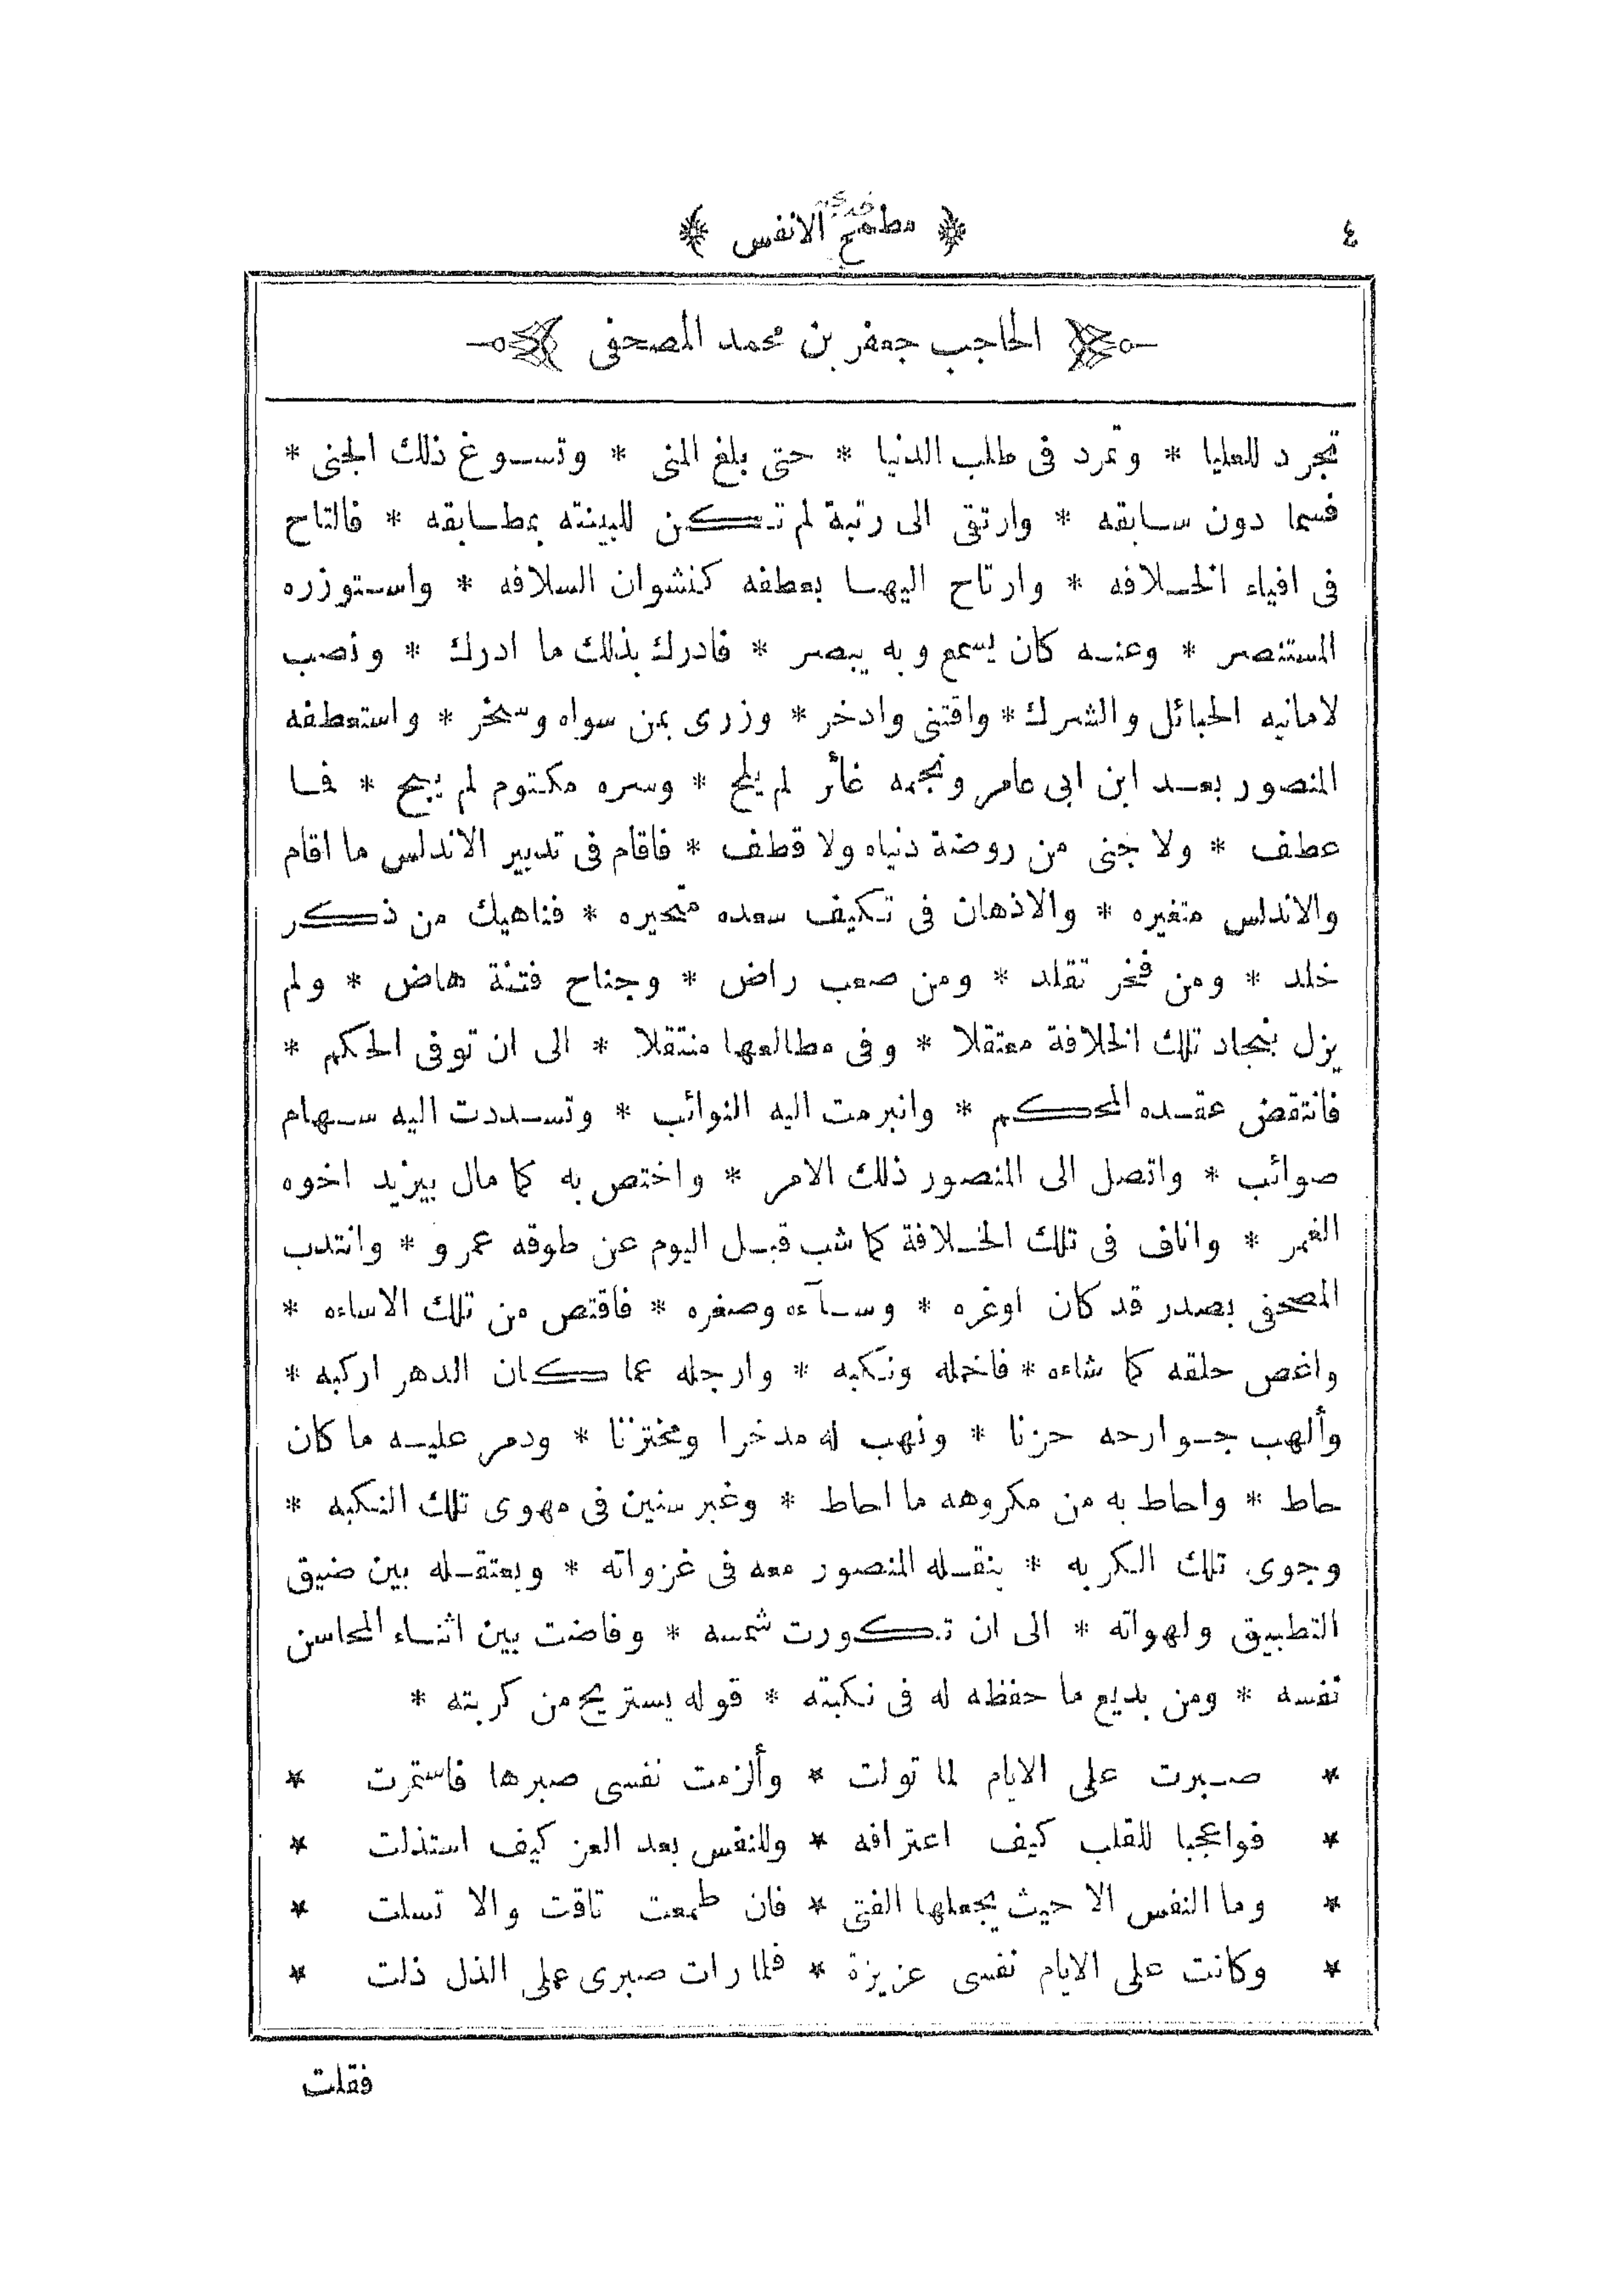 ٤
﴿ مطمح الانفس ﴾
الحاجب جعفر بن محمد المصحفى
تجرد للعليا * وتمرد فى طلب الدنيا * حتى بلغ المنى * وتسوغ ذلك الجنى *
فسما دون سابقه * وارتقى الى رتبة لم تكن للبينته بمطابقه * فالتاح
فى افياء الخلافه * وارتاح اليها بعطفه كنشوان السلافه * واستوزره
المستنصر * وعنه كان يسمع وبه يبصر * فادرك بذلك ما ادرك * ونصب
لامانيه الحبائل والشرك * واقتنى وادخر * وزرى بمن سواه وسخر * واستعطفه
المنصور بعد ابن ابى عامر ونجمه غائر لم يلح * وسره مكتوم لم يبح * فما
عطف * ولا جنى من روضة دنياه ولا قطف * فاقام فى تدبير الاندلس ما اقام
والاندلس متغيره * والاذهان فى تكيف سعده متحيره * فناهيك من ذكر
خلد * ومن فخر تقلد * ومن صعب راض * وجناح فتنة هاض * ولم
يزل بنجاد تلك الخلافة معتقلا * وفى مطالعها منتقلا * الى ان توفى الحكم *
فانتقض عقده المحكم * وانبرمت اليه النوائب * وتسددت اليه سهام
صوائب * واتصل الى المنصور ذلك الامر * واختص به كما مال بيزيد اخوه
الغمر * واناف فى تلك الخلافة كما شب قبل اليوم عن طوقه عمرو * وانتدب
المصحفى بصدر قد كان اوغره * وسآءه وصغره * فاقتص من تلك الاساءه *
واغص حلقه كما شاءه * فاخمله ونكبه * وارجله عما كان الدهر اركبه *
وألهب جوارحه حزنا * ونهب له مدخرا ومختزنا * ودمر عليه ما كان
حاط * واحاط به من مكروهه ما احاط * وغبر سنين فى مهوى تلك النكبه *
وجوى تلك الكربه * ينقله المنصور معه فى غزواته * ويعتقله بين ضيق
التطبيق ولهواته * الى ان تكورت شمسه * وفاضت بين اثناء المحاسن
نفسه * ومن بديع ما حفظه له فى نكبته * قوله يستريح من كربته *
* صبرت على الايام لما تولت * وألزمت نفسى صبرها فاستمرت *
* فواعجبا للقلب كيف اعترافه * وللنفس بعد العز كيف استذلت *
* وما النفس الا حيث يجعلها الفتى * فان طمعت تاقت والا تسلت *
* وكانت على الايام نفسى عزيزة * فلما رات صبرى على الذل ذلت *
فقلت